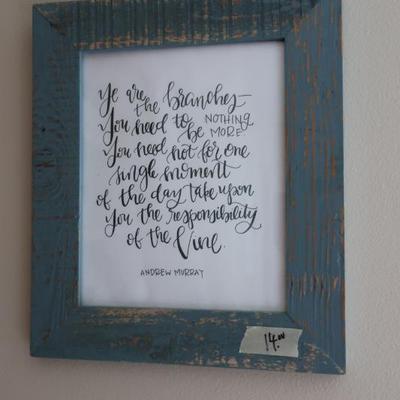 Ye are
the branches—
You need to NOTHING
be MORE.
You need not for one
single moment
of the day take upon
you the responsibility
of the Vine.
ANDREW MURRAY
14.00